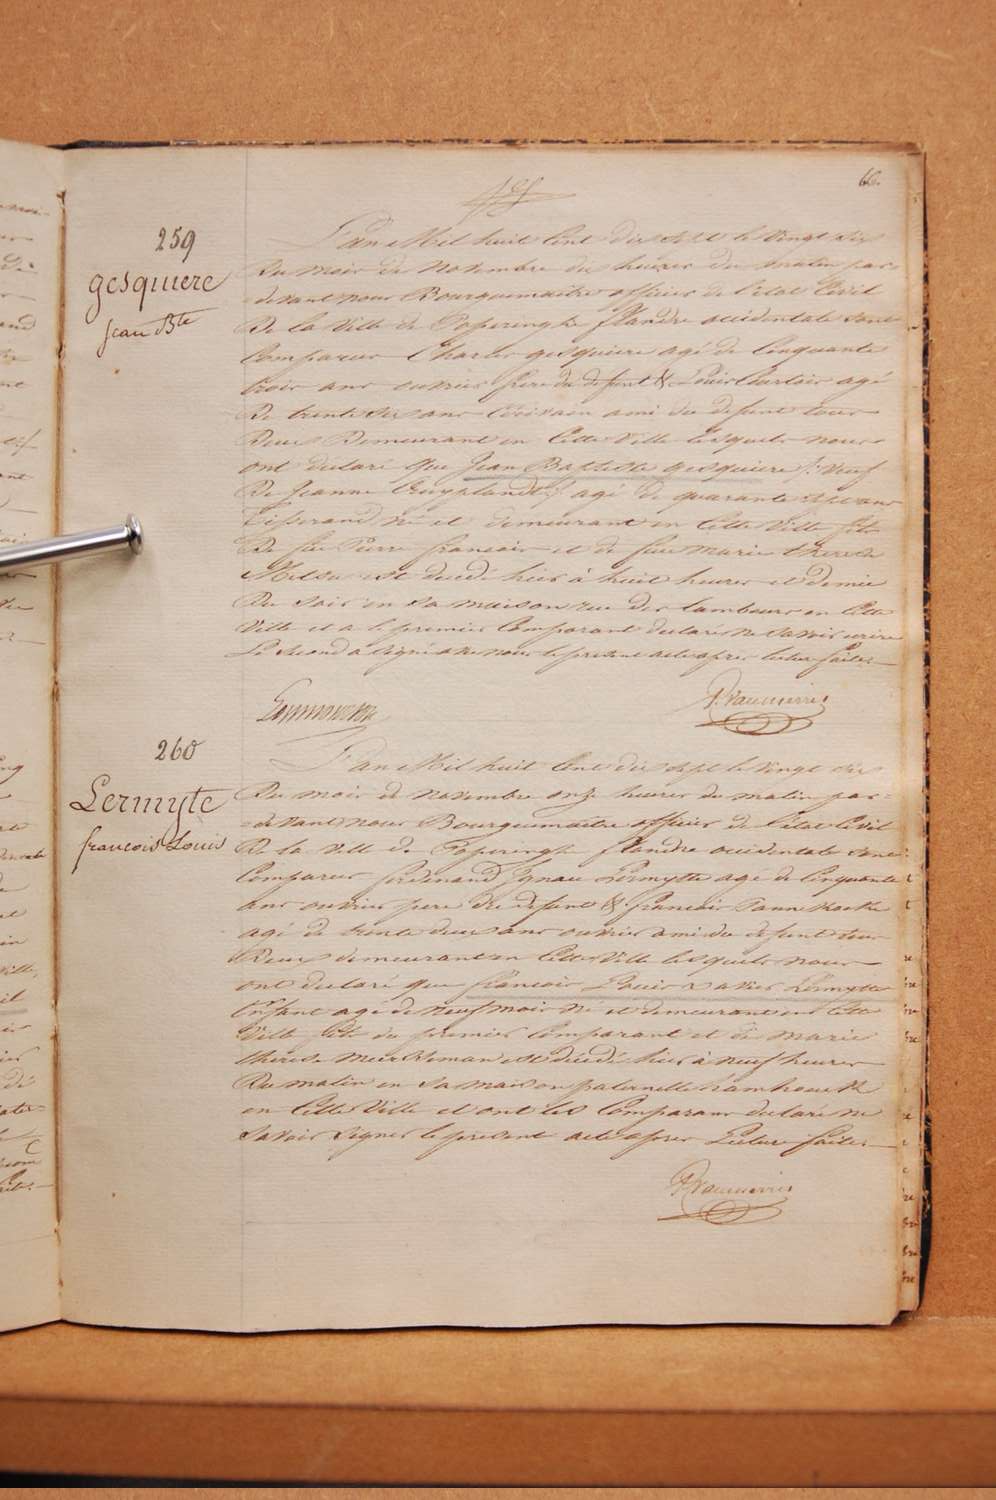 66.
259
gesquiere
Jean Bte
L'an Mil huit Cent dix sept le vingt six
Du mois de Novembre dix heures du matin par-
devant nous Bourguemaitre officier de l'état Civil
De la Ville de Poperinghe flandre occidentale sont
Comparus Charles gesquiere agé de Cinquante
trois ans ouvrier frere du defunt & Louis
agé
De trente six ans Ecrivain ami du defunt tous
Deux Demeurant en Cette Ville lesquels nous
ont déclaré que Jean Baptiste gesquiere /: veuf
De Jeanne :/ agé de quarante sept ans
Tisserand né et demeurant en Cette Ville fils
De feu Pierre francois et de feue Marie therese
est decedé hier à huit heures et demie
Du soir en sa maison rue des tambours en Cette
Ville et a le premier Comparant declaré ne savoir ecrire
Le Second a signé avec nous le present acte apres lecture faite.
260
Lermyte
francois Louis
L'an Mil huit Cent dix sept le vingt six
Du mois de Novembre onze heures du matin par-
devant nous Bourguemaitre officier de l'état Civil
De la Ville de Poperinghe flandre occidentale sont
Comparus ferdinand Ignace Lermytte agé de Cinquante
ans ouvrier pere du defunt & francois
agé de trente deux ans ouvrier ami du defunt tous
Deux demeurant en Cette Ville lesquels nous
ont declaré que francois Louis Xavier Lermytte
Enfant agé de neuf mois né et demeurant en Cette
Ville fils du premier Comparant et de Marie
therese est décédé hier à neuf heures
Du matin en sa maison paternelle
en Cette Ville et ont les Comparans declaré ne
savoir signer le present acte apres Lecture faite.